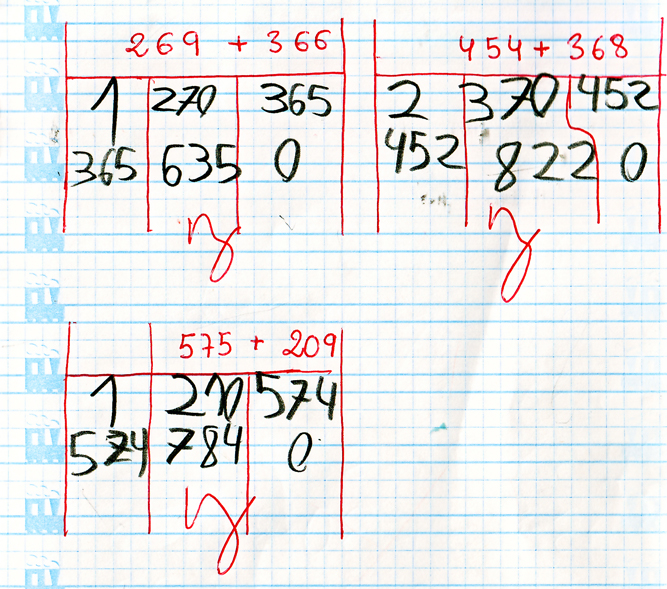 269 + 366
1 270 365
365 635 0
454 + 368
2 370 452
452 822 0
575 + 209
1 210 574
574 784 0